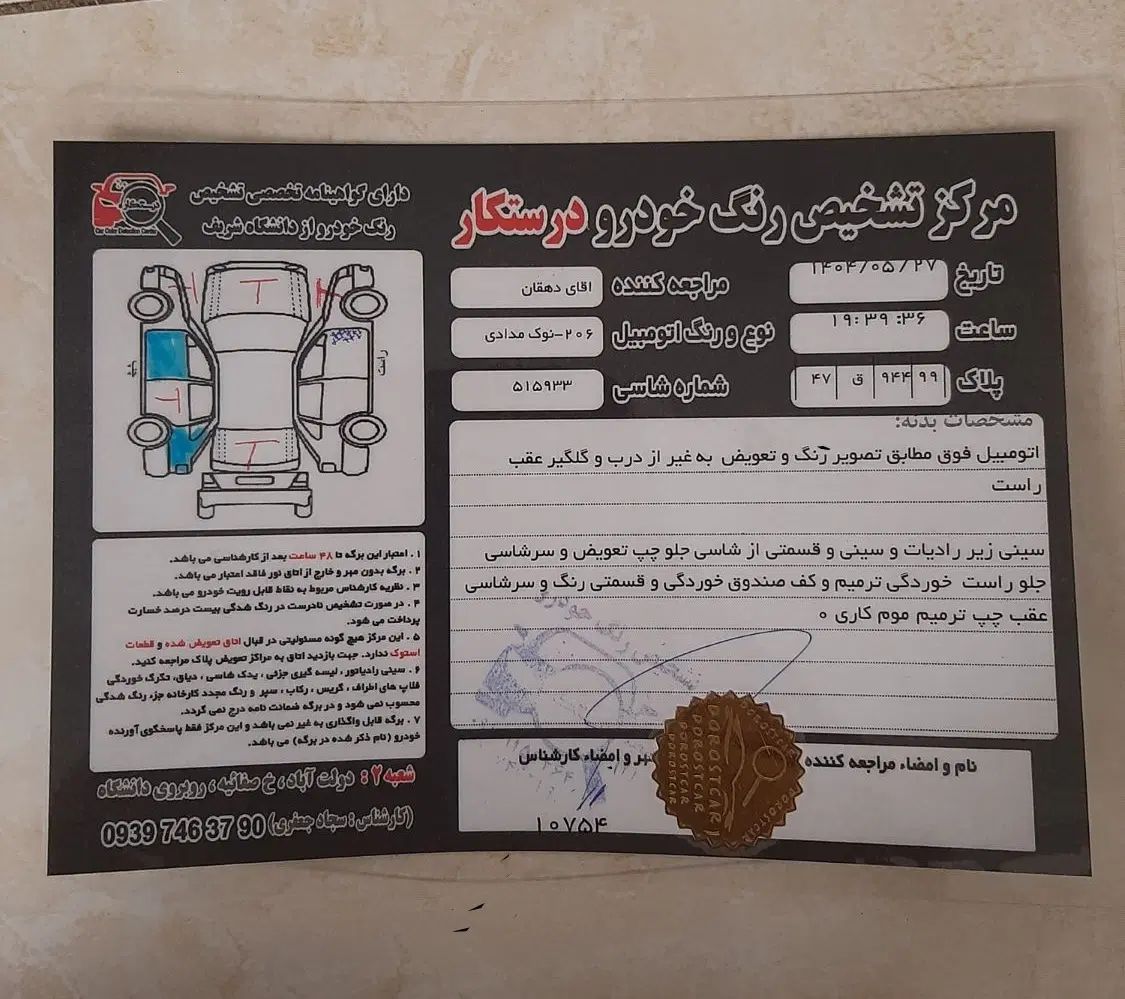 مرکز تشخیص رنگ خودرو درستکار
دارای گواهینامه تخصصی تشخیص
رنگ خودرو از دانشگاه شریف
Car Color Detection Center
تاریخ ۱۴۰۴/۰۵/۲۷
مراجعه کننده اقای دهقان
ساعت ۱۹:۳۹:۳۶
نوع و رنگ اتومبیل ۲۰۶-نوک مدادی
پلاک ۴۷ ق ۹۴۴ ۹۹
شماره شاسی ۵۱۵۹۳۳
مشخصات بدنه:
اتومبیل فوق مطابق تصویر رنگ و تعویض به غیر از درب و گلگیر عقب
راست
سینی زیر رادیات و سینی و قسمتی از شاسی جلو چپ تعویض و سرشاسی
جلو راست خوردگی ترمیم و کف صندوق خوردگی و قسمتی رنگ و سرشاسی
عقب چپ ترمیم موم کاری ۰
نام و امضاء مراجعه کننده
مهر و امضاء کارشناس
۱۰۷۵۴
DOROSTCAR
راست
T
T
۱. اعتبار این برگه تا ۴۸ ساعت بعد از کارشناسی می باشد.
۲. برگه بدون مهر و خارج از اتاق نور فاقد اعتبار می باشد.
۳. نظریه کارشناس مربوط به نقاط قابل رویت خودرو می باشد.
۴. در صورت تشخیص نادرست در رنگ شدگی بیست درصد خسارت
پرداخت می شود.
۵. این مرکز هیچ گونه مسئولیتی در قبال اتاق تعویض شده و قطعات
استوک ندارد. جهت بازدید اتاق به مراکز تعویض پلاک مراجعه کنید.
۶. سینی رادیاتور، لیسه گیری جزئی، یدک شاسی، دیاق، تگرگ خوردگی
قلاپ های اطراف، گریس، رکاب، سپر و رنگ مجدد کارخانه جزء رنگ شدگی
محسوب نمی شود و در برگه ضمانت نامه درج نمی گردد.
۷. برگه قابل واگذاری به غیر نمی باشد و این مرکز فقط پاسخگوی آورنده
خودرو (نام ذکر شده در برگه) می باشد.
شعبه ۲: دولت آباد، خ صفائیه، روبروی دانشگاه
(کارشناس: سجاد جعفری) 0939 746 37 90